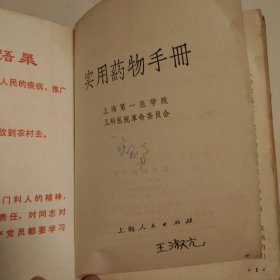 语录
人民的疾病，推广
放到农村去。
门利人的精神，
责任，对同志对
产党员都要学习
实用药物手册
上海第一医学院
儿科医院革命委员会
上海人民出版社
王淑元